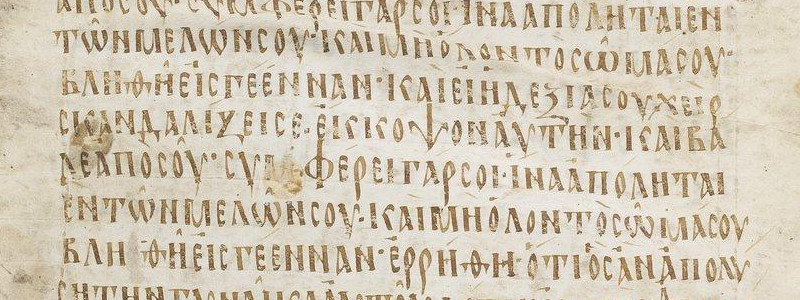 ΑΠΟΣΟΥ· ΣΥΜΦΕΡΕΙΓΑΡΣΟΙ·ΙΝΑΑΠΟΛΗΤΑΙΕΝ
ΤῶΝΜΕΛῶΝΣΟΥ·ΚΑΙΜΗΟΛΟΝΤΟΣῶΜΑΣΟΥ·
ΒΛΗΘΗΕΙΣΓΕΕΝΝΑΝ·ΚΑΙΕΙΗΔΕΞΙΑΣΟΥΧΕΙΡ
ΣΚΑΝΔΑΛΙΖΕΙΣΕ·ΕΚΚΟΨΟΝΑΥΤΗΝ·ΚΑΙΒΑ
ΛΕΑΠΟΣΟΥ·ΣΥΜΦΕΡΕΙΓΑΡΣΟΙ·ΙΝΑΑΠΟΛΗΤΑΙ
ΕΝΤῶΝΜΕΛῶΝΣΟΥ·ΚΑΙΜΗΟΛΟΝΤΟΣῶΜΑΣΟΥ
ΒΛΗΘΗΕΙΣΓΕΕΝΝΑΝ·ΕΡΡΗΘΗ·ΟΤΙΟΣΑΝΑΠΟΛΥ
ΣΗΤΗΝΓΥΝΑΙΚΑ